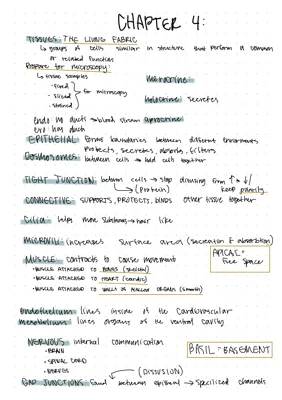 CHAPTER 4:
TISSUES THE LIVING FABRIC
↳ groups of cells similar in structure that perform a common
or related function
Prepare for microscopy:
↳ tissue samples
- fixed
- sliced
- stained
for microscopy
Merocrine
Holocrine secretes
apocrine
endo no ducts → blood stream
exo has duct
EPITHELIAL forms boundaries between different environments
protects, secretes, absorbs, filters
Desmosomes between cells → hold cells together
TIGHT JUNCTION between cells → stop from ↑ ↓/
(protein) keep polarity
CONNECTIVE SUPPORTS, PROTECTS, BINDS other tissue together
Cilia helps move substances → hair like
MICROVILLI increases surface area (secretion & absorption)
MUSCLE contracts to cause movement
- MUSCLE ATTACHED TO BONES (skeletal)
- MUSCLE ATTACHED TO HEART (cardiac)
- MUSCLE ATTACHED TO WALLS OF HOLLOW ORGANS (smooth)
APICAL =
Free Space
Endothelium lines inside of the cardiovascular
Mesothelium lines organs of the ventral cavity
NERVOUS internal communication
- BRAIN
- SPINAL CORD
- NERVES
BASIL - BASEMENT
(DIFFUSION)
GAP JUNCTIONS found between epithelial → specialized channels